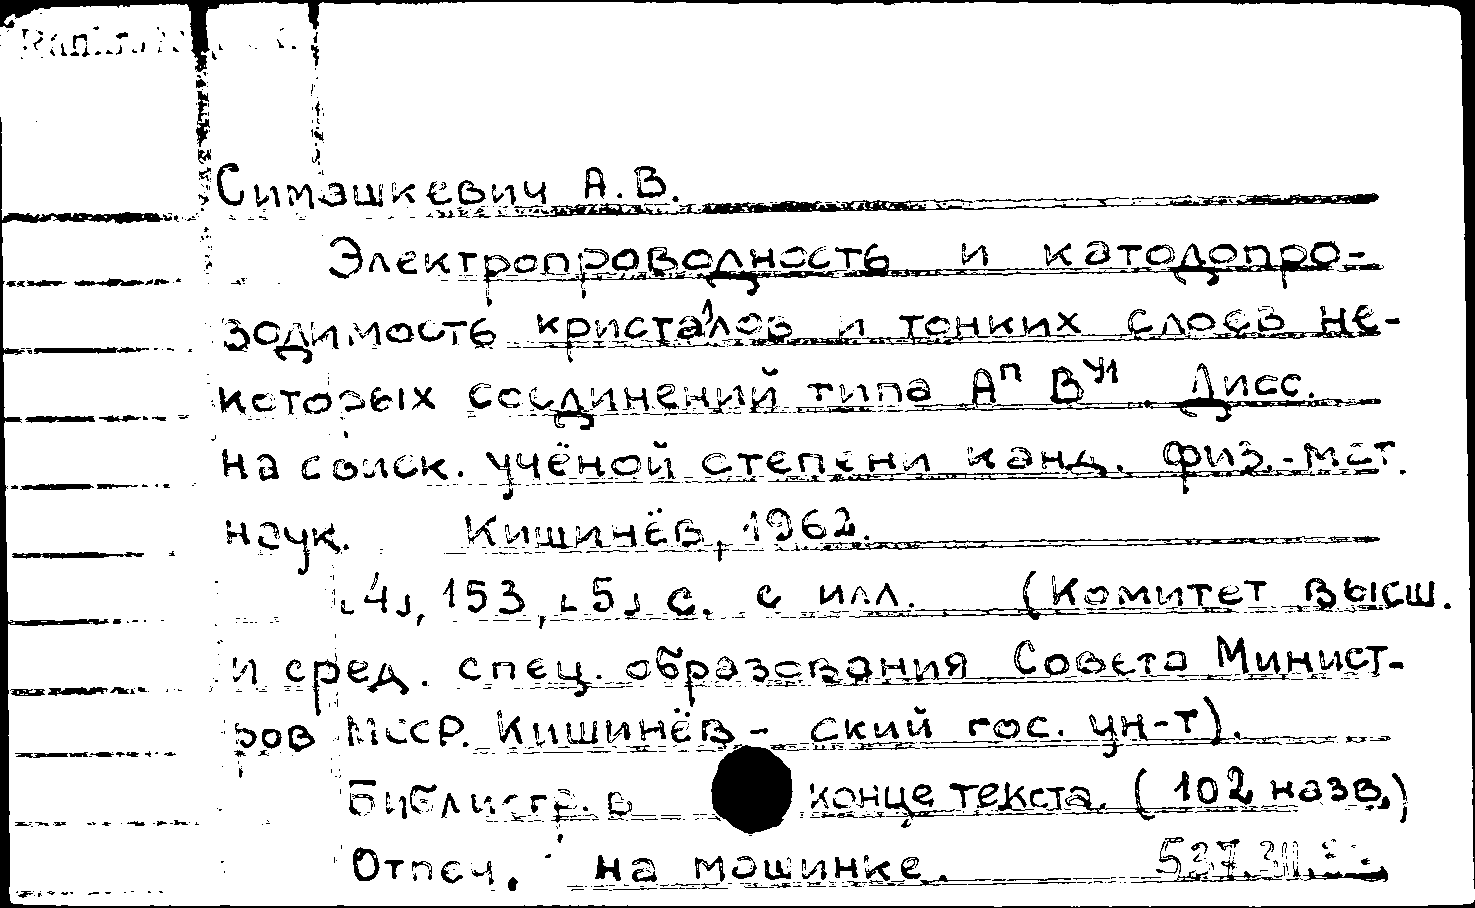 Симашкевич А.В.
Электропроводность и катодопро-
водимость кристаллов и тонких слоев не-
которых соединений типа Aᴵᴵ Bⱽᴵ. Дисс.
на соиск. учёной степени канд. физ.-мат.
наук. Кишинёв, 1962.
[4], 153, [5] с. с илл. (Комитет высш.
и сред. спец. образования Совета Минист-
ров МССР. Кишинёв- ский гос. ун-т).
Библиогр. в конце текста. (102 назв.)
Отпеч. на машинке.